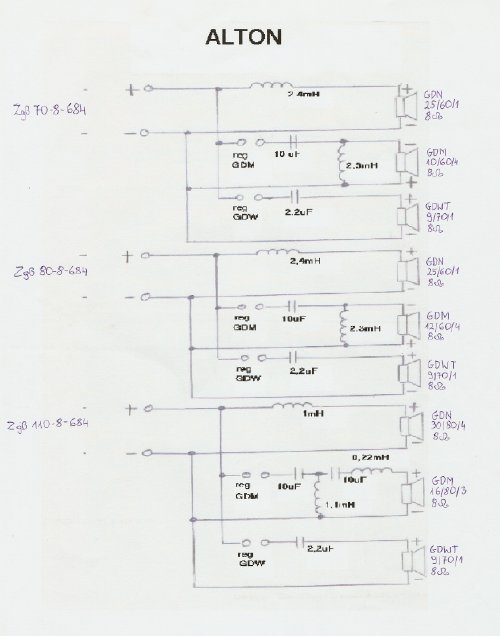 ALTON
2.4mH
+
GDN
25/60/1
8Ω
ZgB 70-8-684
+
-
-
reg
GDM
10 uF
2.3mH
GDM
10/60/4
8Ω
+
reg
GDW
2.2uF
+
GDWT
9/70/1
8Ω
-
+
2,4mH
+
GDN
25/60/1
8Ω
ZgB 80-8-684
-
-
reg
GDM
10uF
2.3mH
GDM
12/60/4
8Ω
+
reg
GDW
2,2uF
+
GDWT
9/70/1
8Ω
-
+
1mH
+
GDN
30/80/4
8Ω
ZgB 110-8-684
-
-
0,22mH
reg
GDM
10uF
10uF
1,1mH
+
GDM
16/80/3
8Ω
-
reg
GDW
2,2uF
+
GDWT
9/70/1
8Ω
-